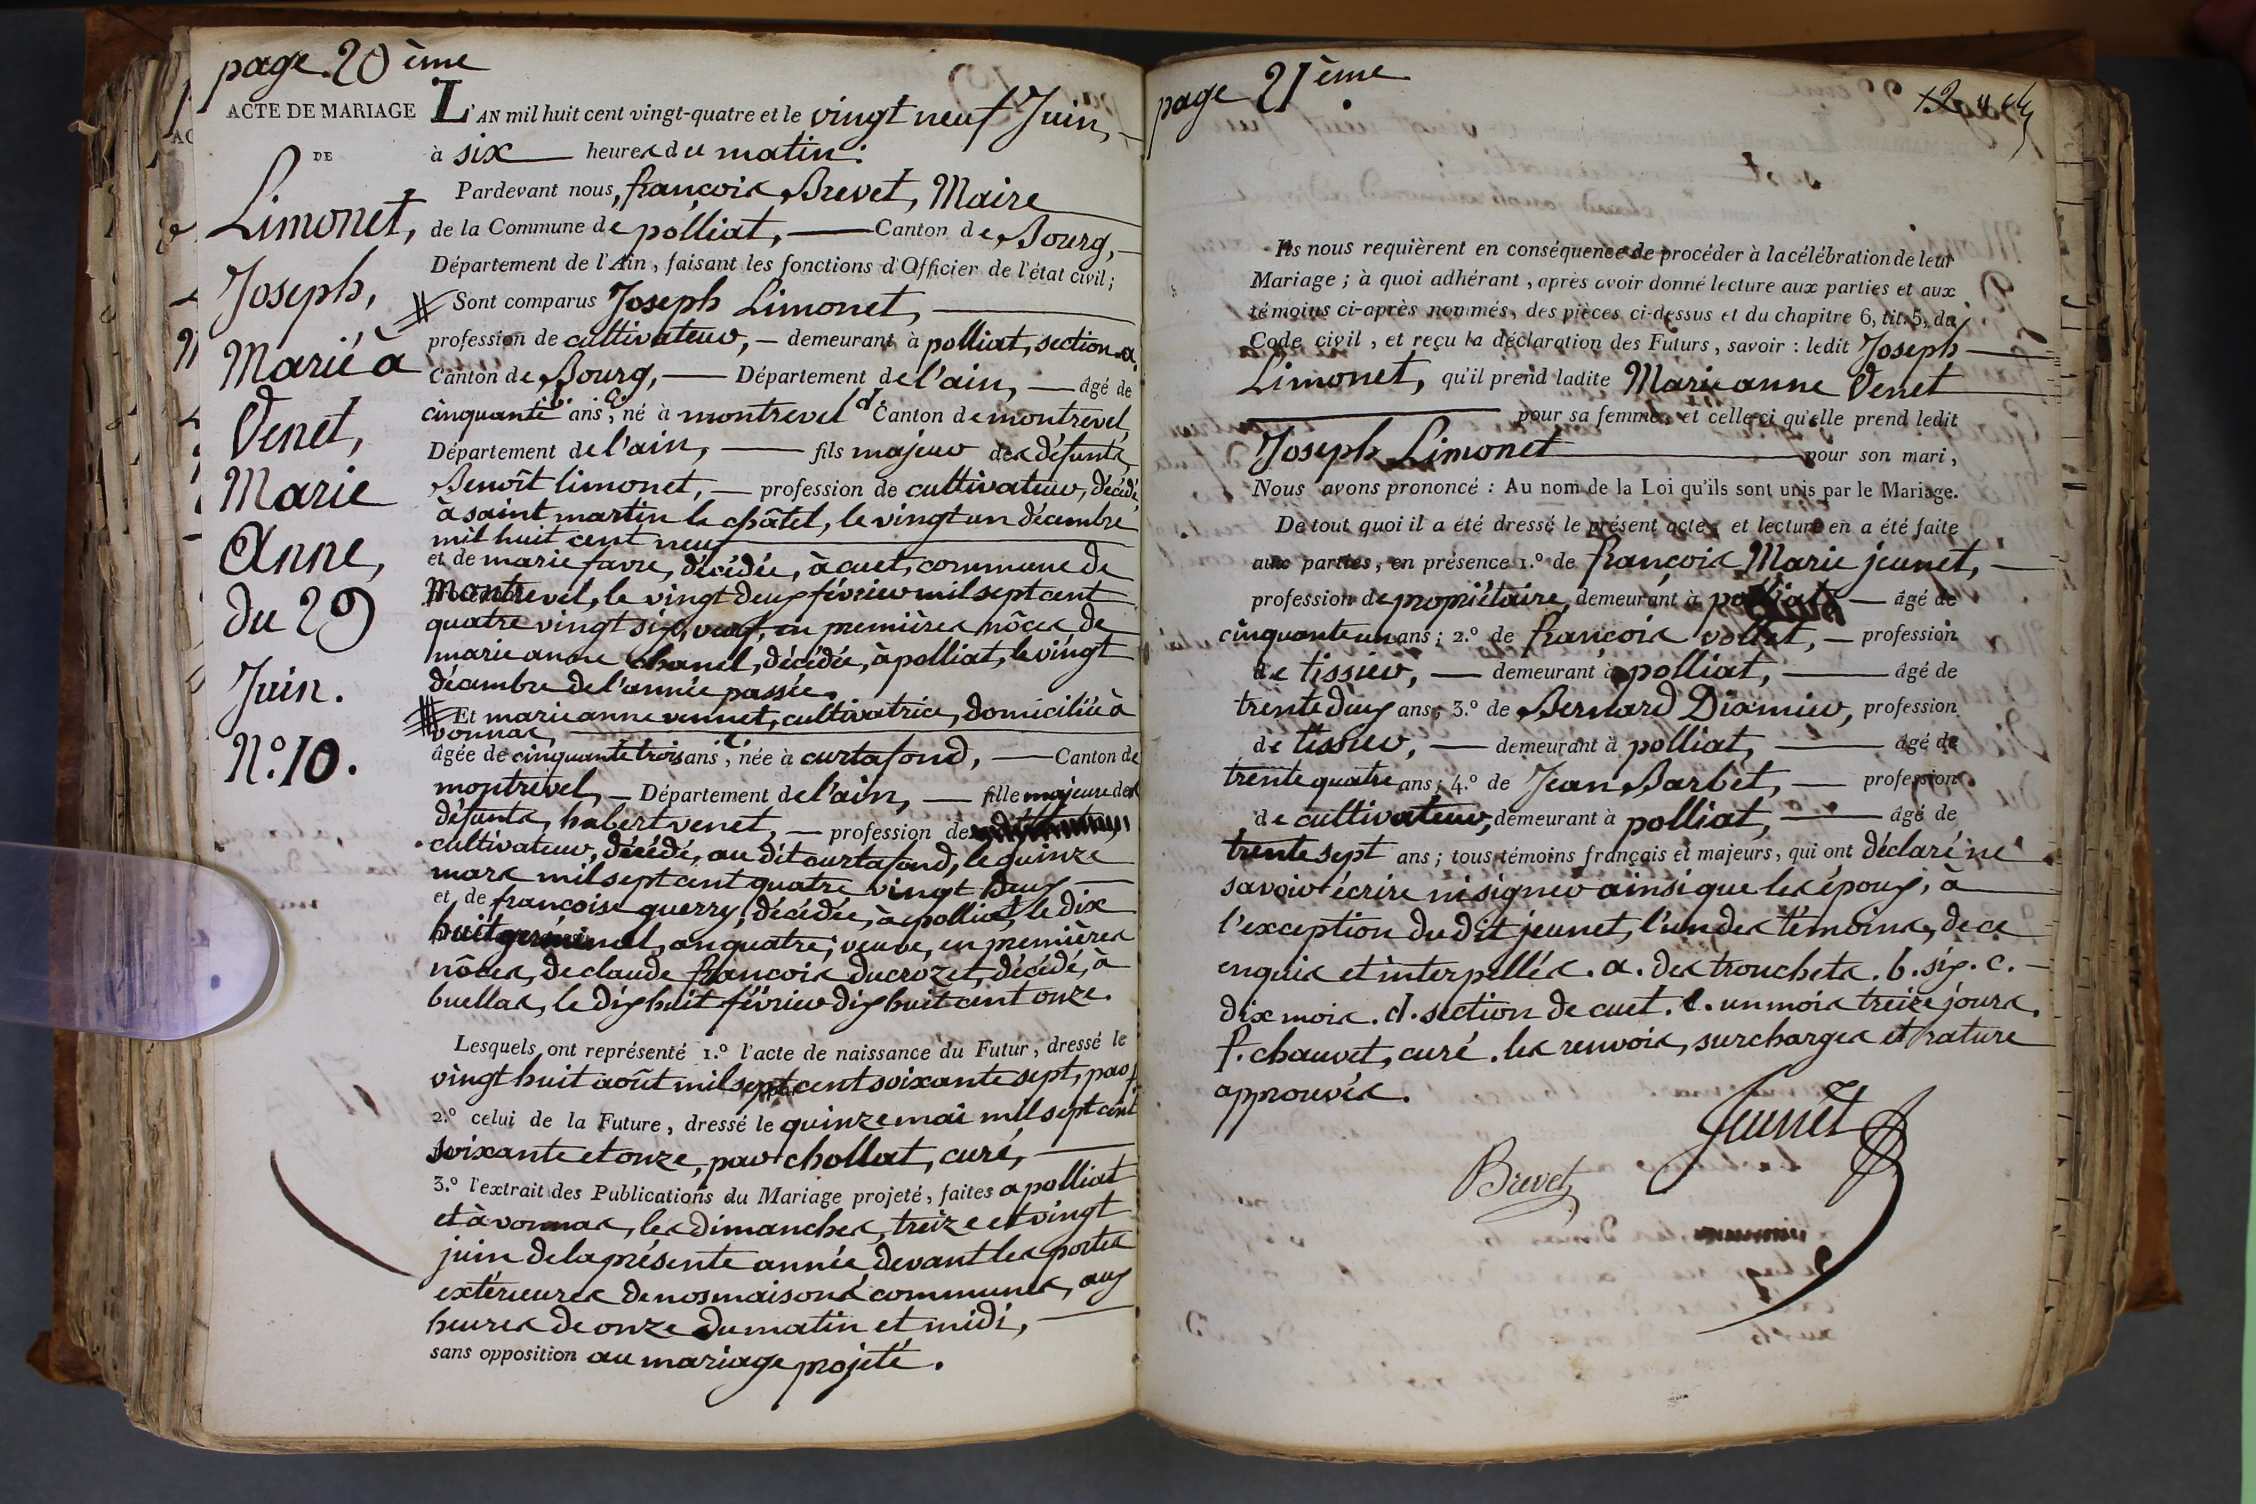 page 20 ème
ACTE DE MARIAGE
DE
Limonet,
Joseph,
Marié à
Venet,
Marie
Anne,
du 29
Juin.
N.o 10.
L'AN mil huit cent vingt-quatre et le vingt neuf Juin,
à six heures du matin.
Pardevant nous, françois Brevet, Maire
de la Commune de polliat, Canton de Bourg,
Département de l'Ain, faisant les fonctions d'Officier de l'état civil;
Sont comparus Joseph Limonet,
profession de cultivateur, demeurant à polliat, section a
Canton de Bourg, Département de l'ain, âgé de
cinquante b ans c, né à montrevel d Canton de montrevel,
Département de l'ain, fils majeur des défunts,
Benoît limonet, profession de cultivateur, décédé,
à saint martin le châtel, le vingt un décembre
mil huit cent neuf
et de marie favre, décédée, à cuet, commune de
Montrevel, le vingt deux février mil sept cent
quatre vingt six, veuf, en premières nôces de
marie anne chanel, décédée, à polliat, le vingt
décembre de l'année passée.
Et marie anne vennet, cultivatrice, domiciliée à
vonnas,
âgée de cinquante trois ans e, née à curtafond, Canton de
montrevel, Département de l'ain, fille majeure des
défunts, habert venet, profession de
cultivateur, décédé, au dit curtafond, le quinze
mars mil sept cent quatre vingt deux
et de françoise guerry, décédée, à polliat, le dix
huit germinal, an quatre; veuve, en premières
nôces, de claude françois ducrozet, décédé, à
buellas, le dix huit février dix huit cent onze.
Lesquels ont représenté 1.o l'acte de naissance du Futur, dressé le
vingt huit août mil sept cent soixante sept, par f.
2.o celui de la Future, dressé le quinze mai mil sept cent
soixante et onze, par chollat, curé,
3.o l'extrait des Publications du Mariage projeté, faites a polliat
et à vonnas, les dimanches, treize et vingt
juin de la présente année devant les portes
extérieures de nos maisons communes, aux
heures de onze du matin et midi,
sans opposition au mariage projeté.
page 21 ème
Ils nous requièrent en conséquence de procéder à la célébration de leur
Mariage; à quoi adhérant, après avoir donné lecture aux parties et aux
témoins ci-après nommés, des pièces ci-dessus et du chapitre 6, tit. 5, du
Code civil, et reçu la déclaration des Futurs, savoir : ledit Joseph
Limonet, qu'il prend ladite Marie anne Venet
pour sa femme, et celle-ci qu'elle prend ledit
Joseph Limonet pour son mari,
Nous avons prononcé : Au nom de la Loi qu'ils sont unis par le Mariage.
De tout quoi il a été dressé le présent acte, et lecture en a été faite
aux parties, en présence 1.o de françois Marie jeunet,
profession de propiétaire, demeurant à polliat âgé de
cinquante un ans; 2.o de françois vollet, profession
de tissier, demeurant à polliat, âgé de
trente deux ans; 3.o de Bernard Diamieu, profession
de tissier, demeurant à polliat, âgé de
trente quatre ans; 4.o de Jean Barbet, profession
de cultivateur, demeurant à polliat, âgé de
trente sept ans; tous témoins français et majeurs, qui ont déclaré ne
savoir écrire ni signer ainsi que les époux, à
l'exception du dit jeunet, l'un des témoins, de ce
enquis et interpellés. a. des trouchets. b. six. c.
dix mois. d. section de cuet. e. un mois treize jours.
f. chauvet, curé. les renvois, surcharges et rature
approuvés.
Jeunet
Brevet